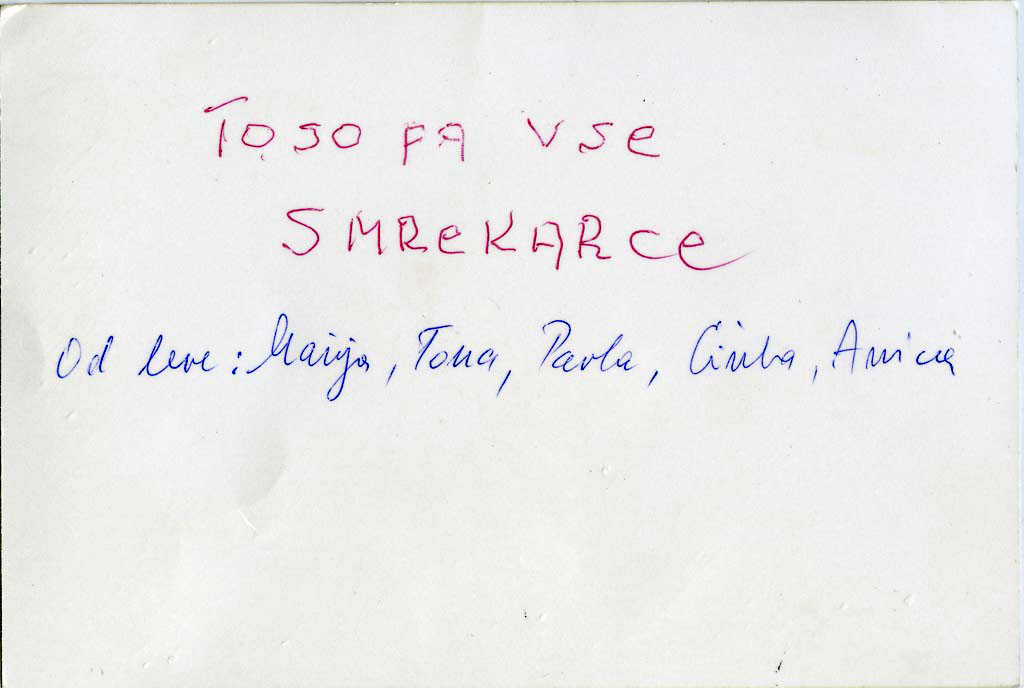 TO SO PA VSE
SMREKARCE
Od leve: Marija, Tona, Pavla, Cinka, Anica